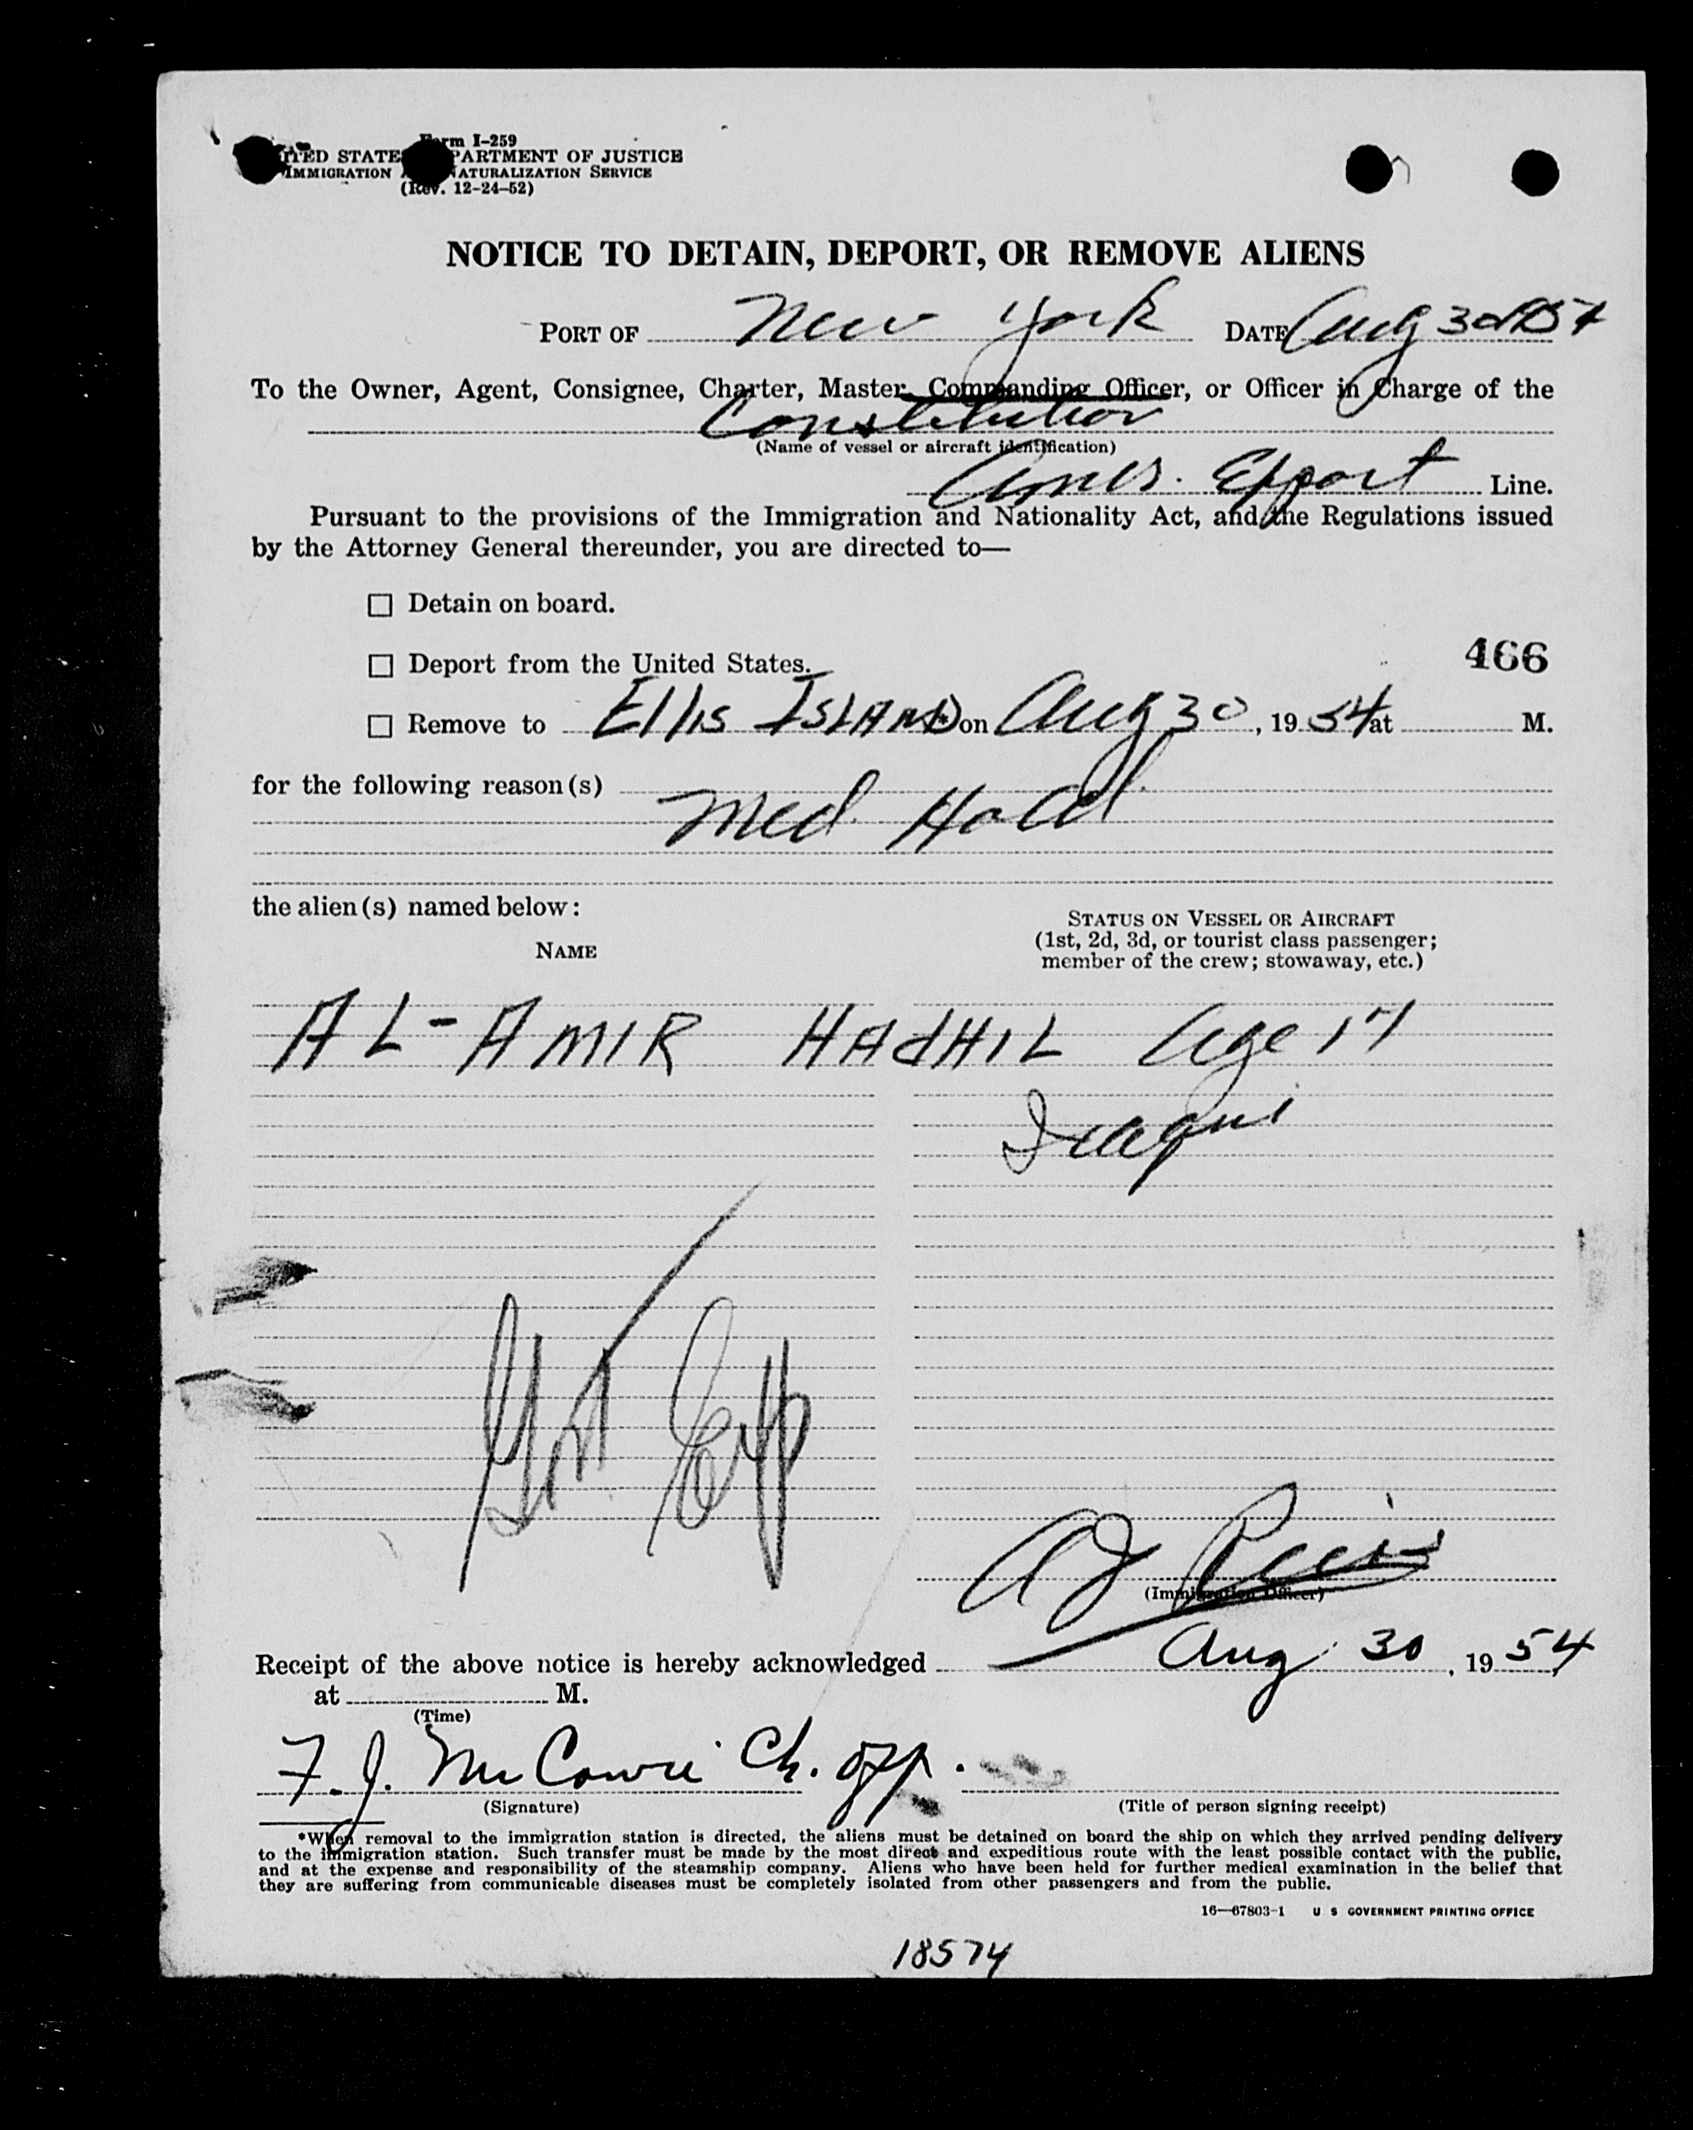 Form I-259
UNITED STATES DEPARTMENT OF JUSTICE
IMMIGRATION AND NATURALIZATION SERVICE
(Rev. 12-24-52)
NOTICE TO DETAIN, DEPORT, OR REMOVE ALIENS
PORT OF New York DATE Aug 30 1954
To the Owner, Agent, Consignee, Charter, Master, Commanding Officer, or Officer in Charge of the
Constitution
(Name of vessel or aircraft identification)
Amer. Export Line.
Pursuant to the provisions of the Immigration and Nationality Act, and the Regulations issued
by the Attorney General thereunder, you are directed to—
☐ Detain on board.
466
☐ Deport from the United States.
☐ Remove to Ellis Island on Aug 30, 1954 at M.
for the following reason(s)
Med. Hold
the alien(s) named below:
NAME
STATUS ON VESSEL OR AIRCRAFT
(1st, 2d, 3d, or tourist class passenger;
member of the crew; stowaway, etc.)
AL-AMIR HAdHIL Age 17
Iraqui
A J
(Immigration Officer)
Receipt of the above notice is hereby acknowledged Aug 30, 1954
at M.
(Time)
F. J. Ch. off.
(Signature) (Title of person signing receipt)
*When removal to the immigration station is directed, the aliens must be detained on board the ship on which they arrived pending delivery
to the immigration station. Such transfer must be made by the most direct and expeditious route with the least possible contact with the public,
and at the expense and responsibility of the steamship company. Aliens who have been held for further medical examination in the belief that
they are suffering from communicable diseases must be completely isolated from other passengers and from the public.
16—67803-1 U S GOVERNMENT PRINTING OFFICE
18574